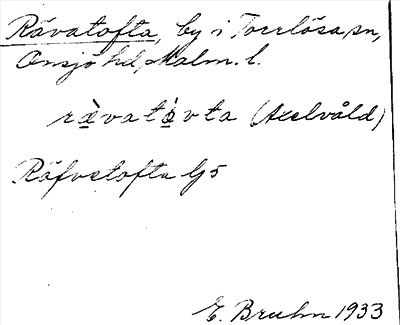 Rävatofta, by i Torrlösa sn,
Onsjö hd, Malm. l.
ræ̀vatòvta (Axelvåld)
Räfvetofta G5
E. Bruhn 1933